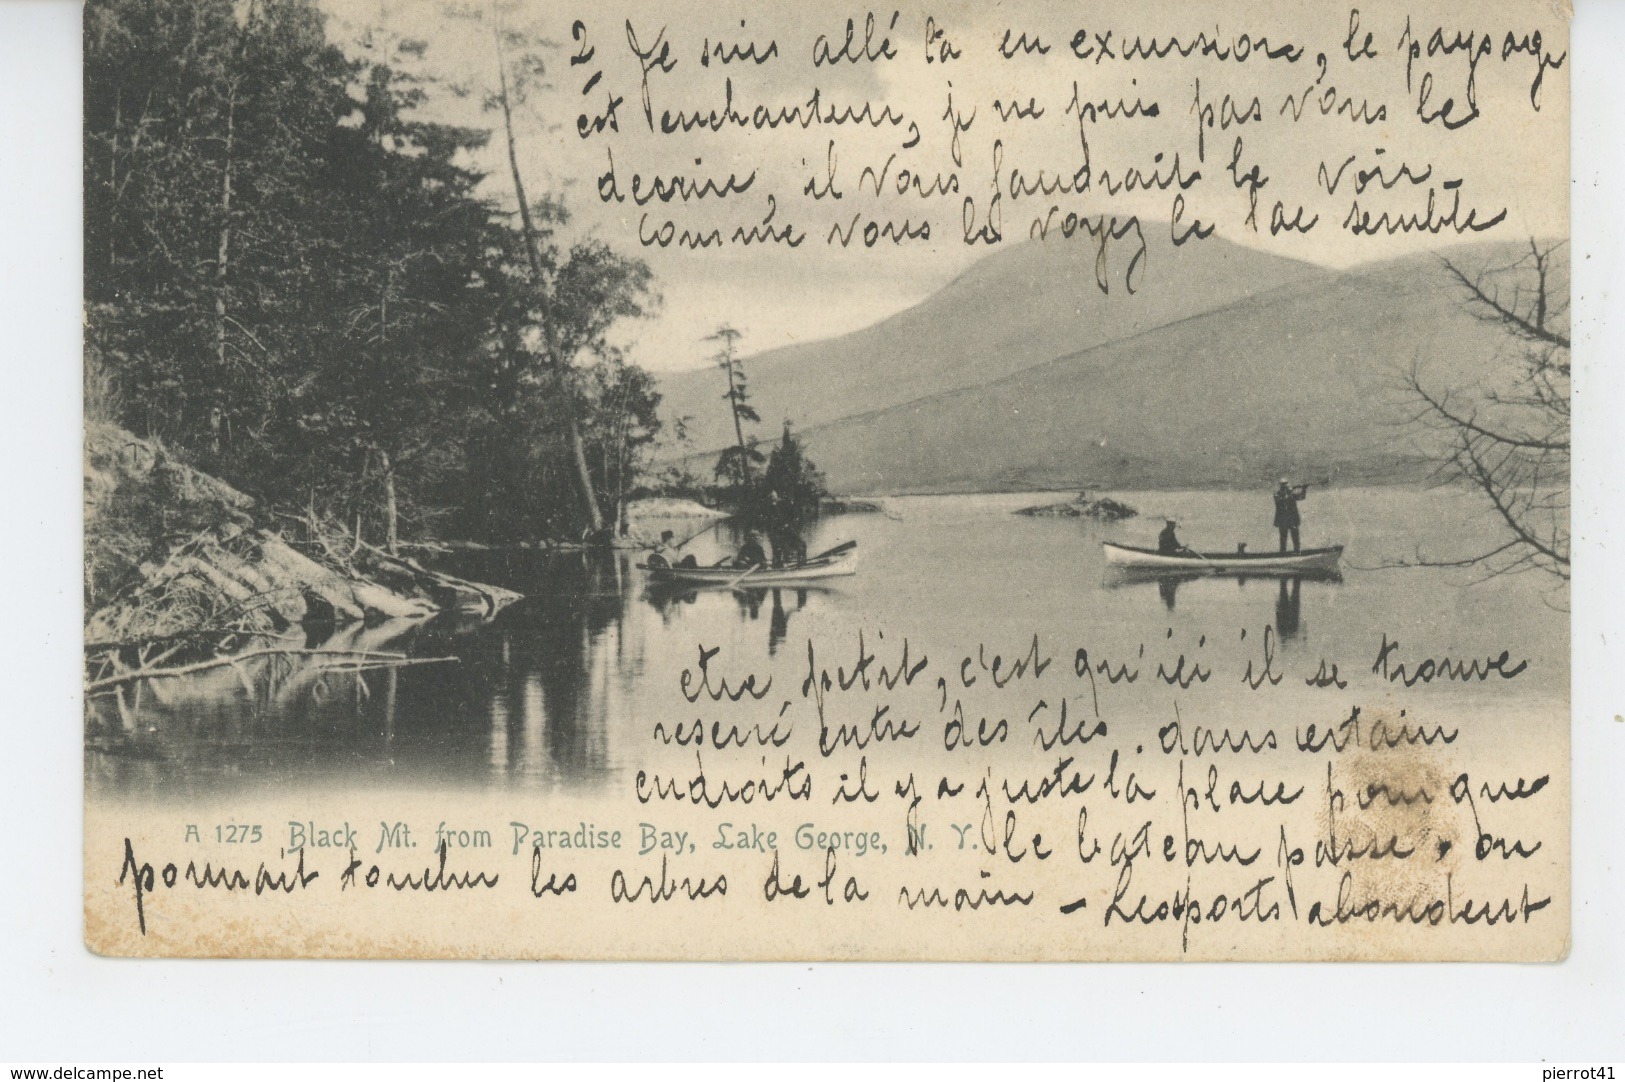 2 Je suis allé là en excursion, le paysage
est enchanteur, je ne puis pas vous le
decrire, il vous faudrait le voir -
comme vous le voyez le lac semble
etre petit, c'est qu'ici il se trouve
reserré entre des îles. dans certain
endroits il y a juste la place pour que
A 1275 Black Mt. from Paradise Bay, Lake George, N. Y.
le bateau passe. on
pourrait toucher les arbres de la main - Les sports abondent
www.delcampe.net
pierrot41